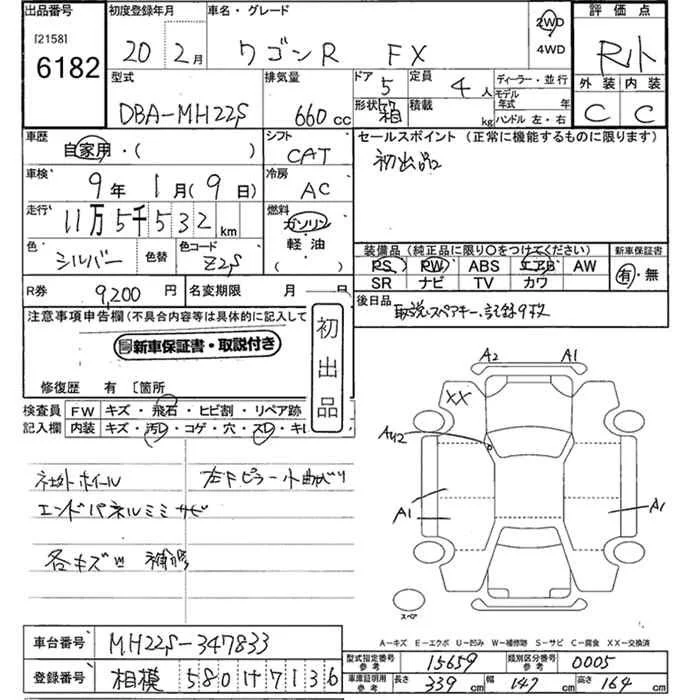 出品番号 初度登録年月 車名・グレード 評価点
[2158] 20 2月 ワゴンR FX 2WD R小
6182 4WD
型式 排気量 ドア 5 定員 4人 ディーラー・並行 外装 内装
DBA-MH22S 660cc 形状 箱 積載 kg モデル年式 年 C C
ハンドル 左・右
車歴 シフト セールスポイント (正常に機能するものに限ります)
自家用・( ) CAT 初出品
車検 9年 1月(9日) 冷房 AC
走行 11万5千532km 燃料 ガソリン
軽油
( )
色 シルバー 色替 色コード Z2S 装備品(純正品に限り○をつけてください) 新車保証書
PS PW ABS エアB AW 有・無
SR ナビ TV カワ
R券 9,200円 名変期限 月 日 後日品
取説・スペアキー・記録9枚
注意事項申告欄(不具合内容等は具体的に記入して 初出品
新車保証書・取説付き
修復歴 有 〔箇所
検査員 FW キズ・飛石・ヒビ割・リペア跡
記入欄 内装 キズ・汚レ・コゲ・穴・スレ・キレ
社外ホイール 左Fピラー小曲がり
エンドパネルミミサビ
各キズU 補修
A2 A1
XX
AU2
A1 A1
スペア
A-キズ E-エクボ U-凹み W-補修跡 S-サビ C-腐食 XX-交換済
車台番号 MH22S-347833
型式指定番号 参考 15659 類別区分番号 参考 0005
登録番号 相模 580 け 7136
車庫証明用 参考 長さ 339cm 幅 147cm 高さ 164cm